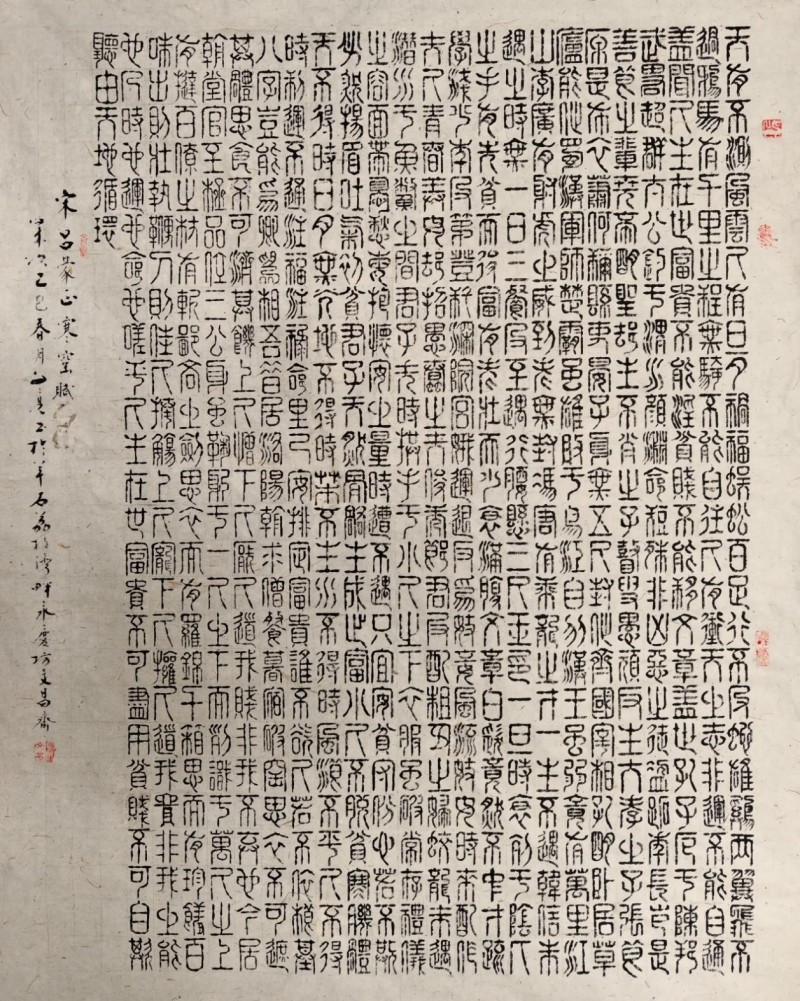 天有不測風雲人有旦夕禍福蜈蚣百足行不及蛇雄雞兩翼飛不
過鴉馬有千里之程無騎不能自往人有凌天之志非運不能自通
蓋聞人生在世富貴不能淫貧賤不能移文章蓋世孔子厄于陳邦
武略超群太公釣于渭水顏淵命短殊非凶惡之徒盜跖年長豈是
善良之輩堯帝明聖卻生不肖之子瞽叟愚頑反生大孝之子張良
原是布衣蕭何稱縣吏晏子身無五尺封作齊國宰相孔明臥居草
廬能作蜀漢軍師楚霸雖雄敗于烏江自刎漢王雖弱竟有萬里江
山李廣有射虎之威到老無封馮唐有乘龍之才一生不遇韓信未
遇之時無一日三餐及至遇行腰懸三尺玉印一旦時衰于陰人
之手有先貧而後富有老壯而少衰滿腹文章白髮竟然不中才疏
學淺少年及第登科深院宮娥運退反為妓妾風流妓女時來配作
夫人青春美女卻招愚蠢之夫俊秀郎君反配粗丑之婦蛟龍未遇
潛水于魚鱉之間君子失時拱手于小人之下衣服雖破常存禮儀
之容面帶憂愁每抱懷安之量時遭不遇只宜安貧守份心若不欺
必然揚眉吐氣初貧君子天然骨骼生成乍富小人不脫貧寒肌體
天不得時日月無光地不得時草不生水不得時風浪不平人不得
時利運不通注福注祿命里已安排定富貴誰不欲人若不依根基
八字豈能為卿為相吾昔居洛陽朝求僧餐暮宿破窯思衣不可遮
其體思食不可濟其饑上人憎下人厭人道我賤非我不棄也今居
朝堂官至極品位三公身雖鞠躬于一人之下而列職于萬人之上
有撻百僚之杖有斬鄙吝之劍思衣而有羅錦千箱思而有珍饈百
味出則壯執鞭入則佳人捧觴上人寵下人擁人道我貴非我之能
也此時也運也命也嗟乎人生在世富貴不可盡用貧賤不可自欺
聽由天地循環
宋呂蒙正寒窯賦
歲次乙巳春月於文昌齋